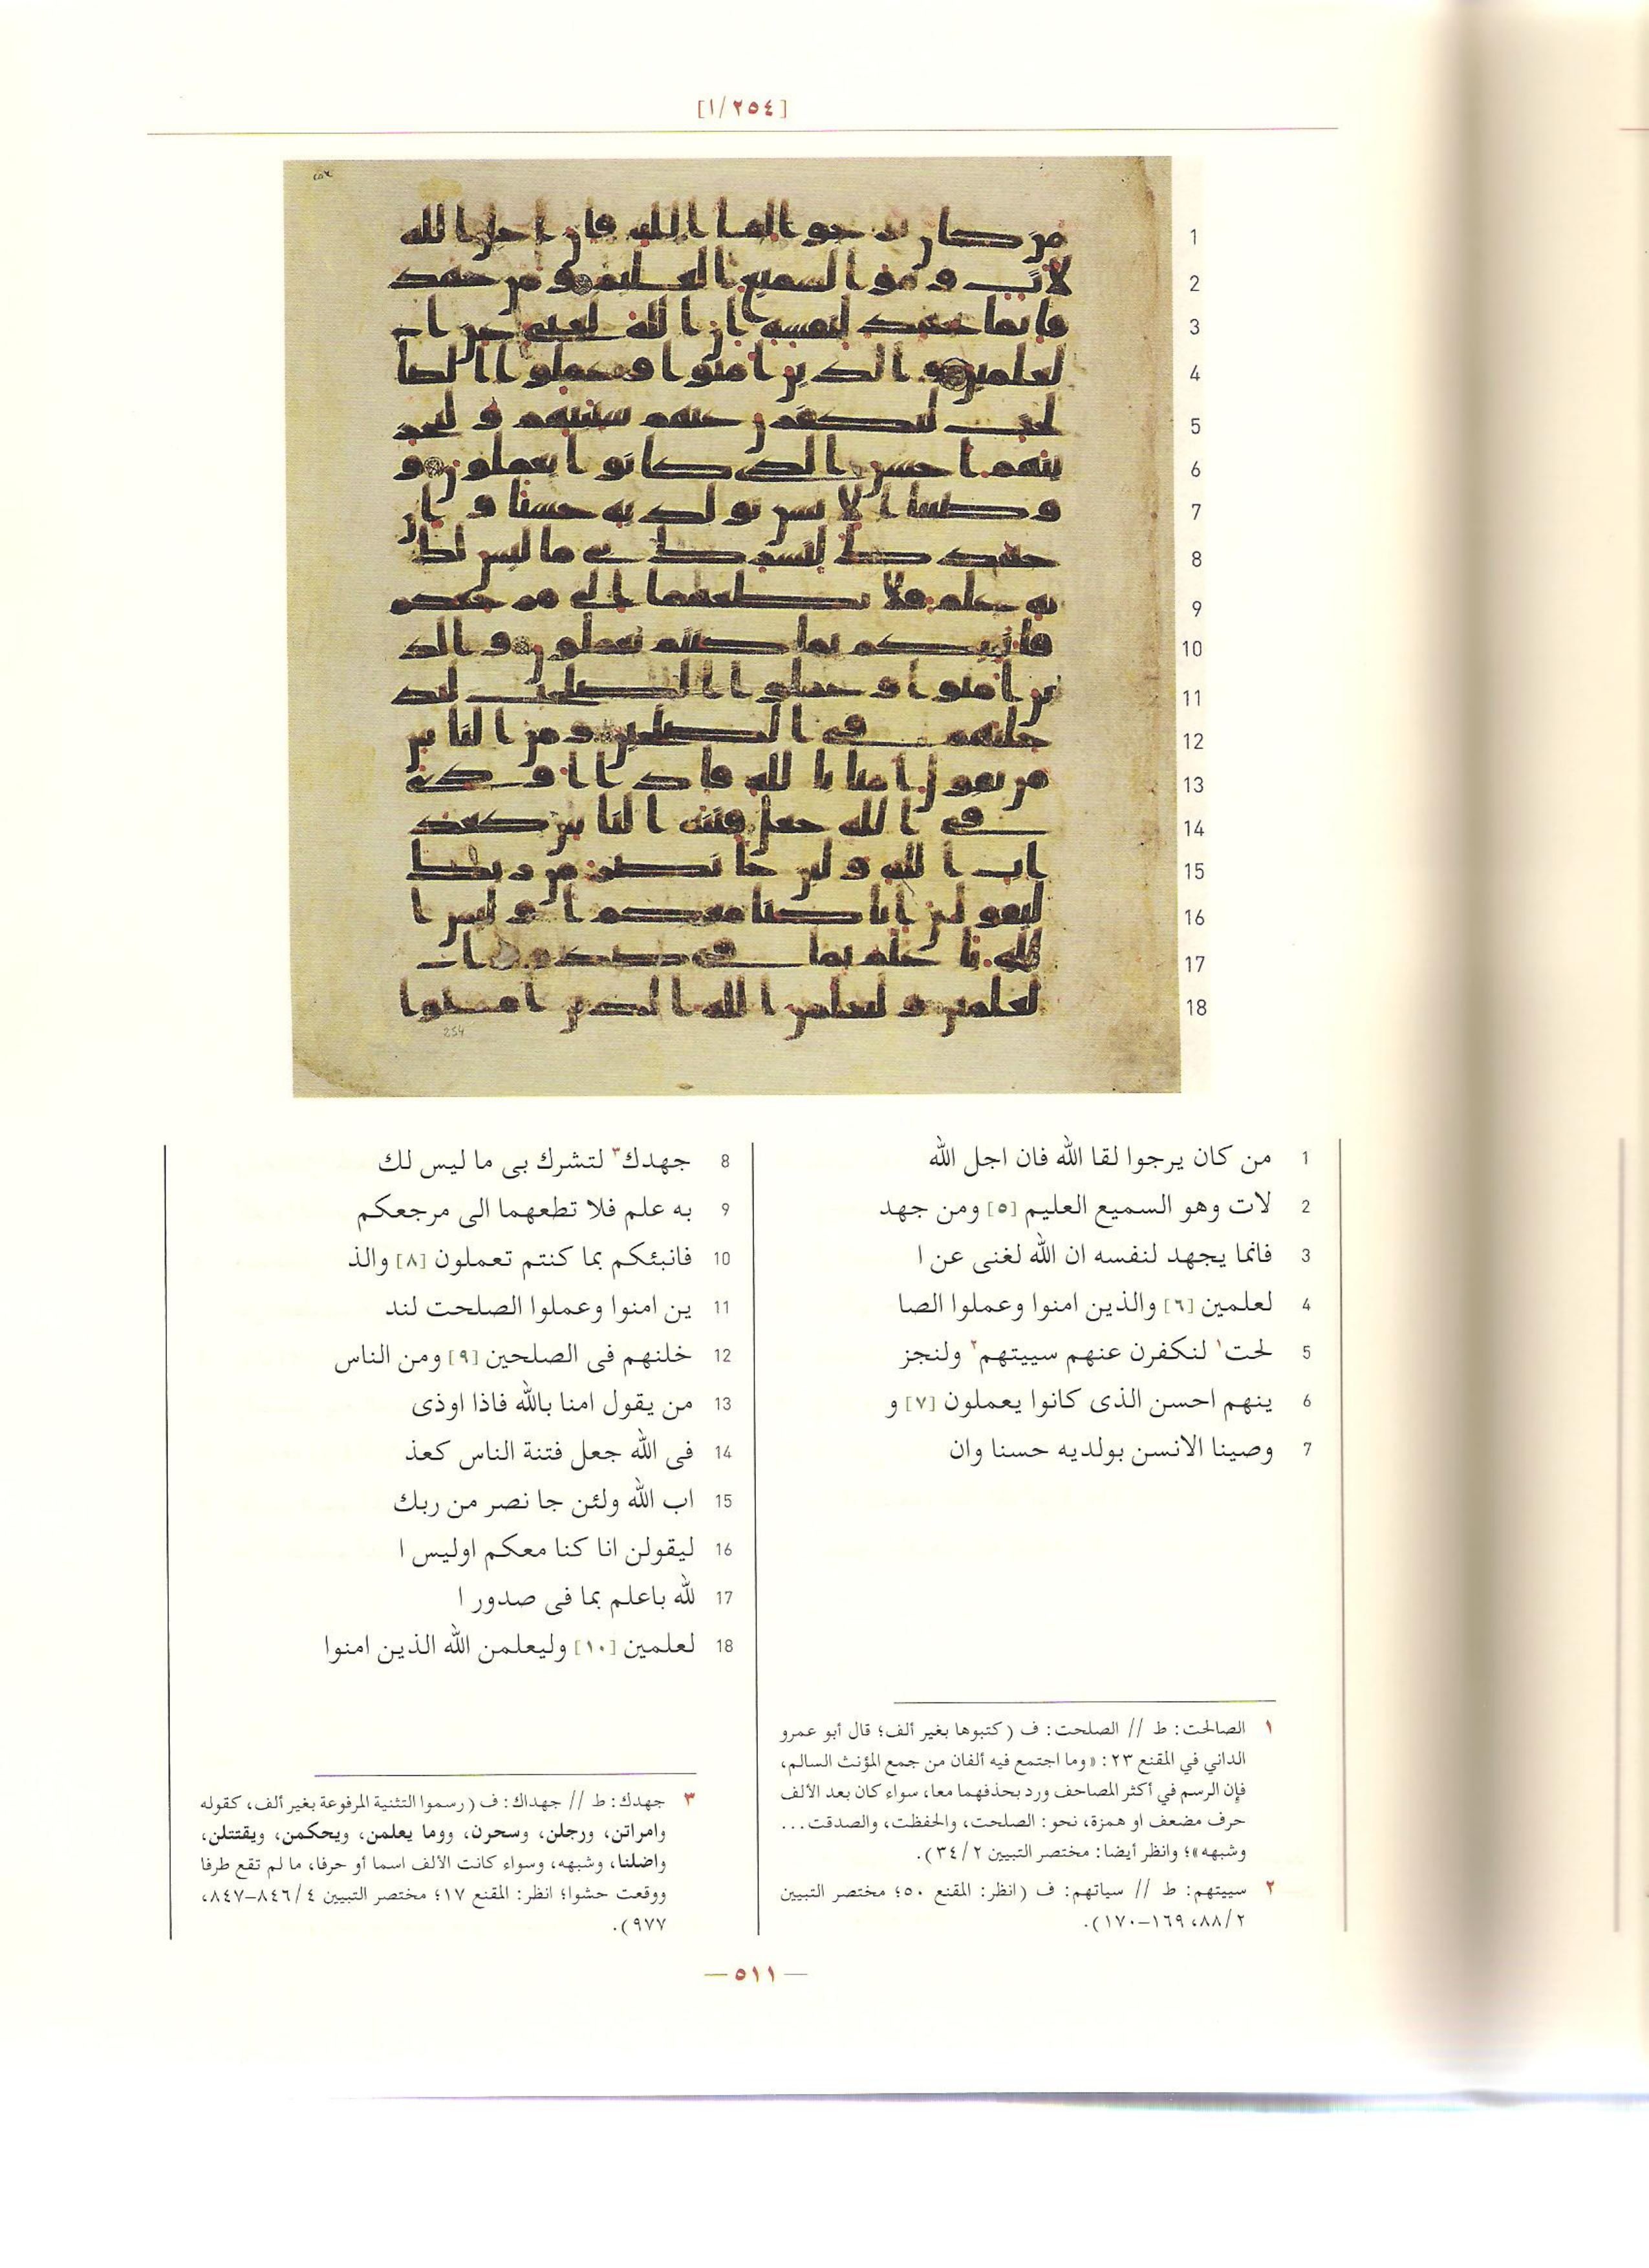 [١/٢٥٤]
1 من كان يرجوا لقا الله فان اجل الله
2 لات وهو السميع العليم [٥] ومن جهد
3 فانما يجهد لنفسه ان الله لغنى عن ا
4 لعلمين [٦] والذين امنوا وعملوا الصا
5 لحت١ لنكفرن عنهم سييتهم٢ ولنجز
6 ينهم احسن الذى كانوا يعملون [٧] و
7 وصينا الانسن بولديه حسنا وان
8 جهدك٣ لتشرك بى ما ليس لك
9 به علم فلا تطعهما الى مرجعكم
10 فانبئكم بما كنتم تعملون [٨] والذ
11 ين امنوا وعملوا الصلحت لند
12 خلنهم فى الصلحين [٩] ومن الناس
13 من يقول امنا بالله فاذا اوذى
14 فى الله جعل فتنة الناس كعذ
15 اب الله ولئن جا نصر من ربك
16 ليقولن انا كنا معكم اوليس ا
17 لله باعلم بما فى صدور ا
18 لعلمين [١٠] وليعلمن الله الذين امنوا
١ الصالحت: ط // الصلحت: ف (كتبوها بغير ألف؛ قال أبو عمرو
الداني في المقنع ٢٣: «وما اجتمع فيه ألفان من جمع المؤنث السالم،
فإن الرسم في أكثر المصاحف ورد بحذفهما معا، سواء كان بعد الألف
حرف مضعف او همزة، نحو: الصلحت، والحفظت، والصدقت...
وشبهه»؛ وانظر أيضا: مختصر التبيين ٣٤/٢).
٢ سييتهم: ط // سياتهم: ف (انظر: المقنع ٥٠؛ مختصر التبيين
٨٨/٢، ١٦٩–١٧٠).
٣ جهدك: ط // جهداك: ف (رسموا التثنية المرفوعة بغير ألف، كقوله
وامراتن، ورجلن، وسحرن، ووما يعلمن، ويحكمن، ويقتتلن،
واضلنا، وشبهه، وسواء كانت الألف اسما أو حرفا، ما لم تقع طرفا
ووقعت حشوا؛ انظر: المقنع ١٧؛ مختصر التبيين ٨٤٦/٤–٨٤٧،
٩٧٧).
— ٥١١ —